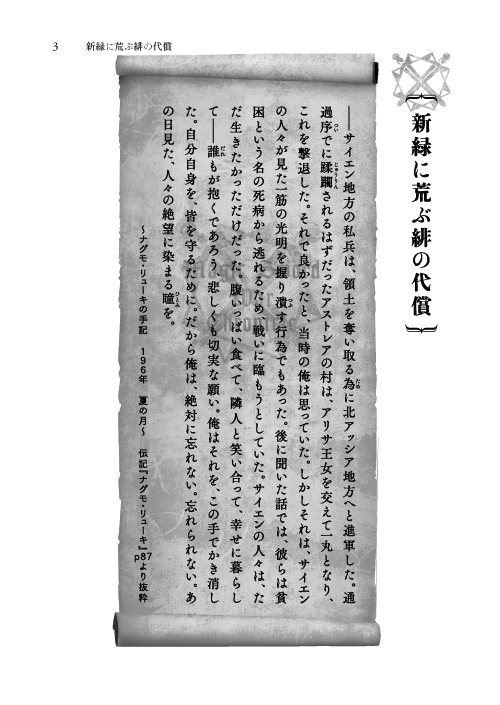 3 新緑に荒ぶ緋の代償
新緑に荒ぶ緋の代償
――サイエン地方の私兵は、領土を奪い取る為に北アッシア地方へと進軍した。通
過序でに蹂躙されるはずだったアストレアの村は、アリサ王女を交えて一丸となり、
これを撃退した。それで良かったと、当時の俺は思っていた。しかしそれは、サイエン
の人々が見た一筋の光明を握り潰す行為でもあった。後に聞いた話では、彼らは貧
困という名の死病から逃れるため、戦いに臨もうとしていた。サイエンの人々は、た
だ生きたかっただけだった。腹いっぱい食べて、隣人と笑い合って、幸せに暮らし
て――誰もが抱くであろう、悲しくも切実な願い。俺はそれを、この手でかき消し
た。自分自身を、皆を守るために。だから俺は、絶対に忘れない。忘れられない。あ
の日見た、人々の絶望に染まる瞳を。
～ナグモ・リューキの手記 196年 夏の月～ 伝記『ナグモ・リューキ』p87より抜粋